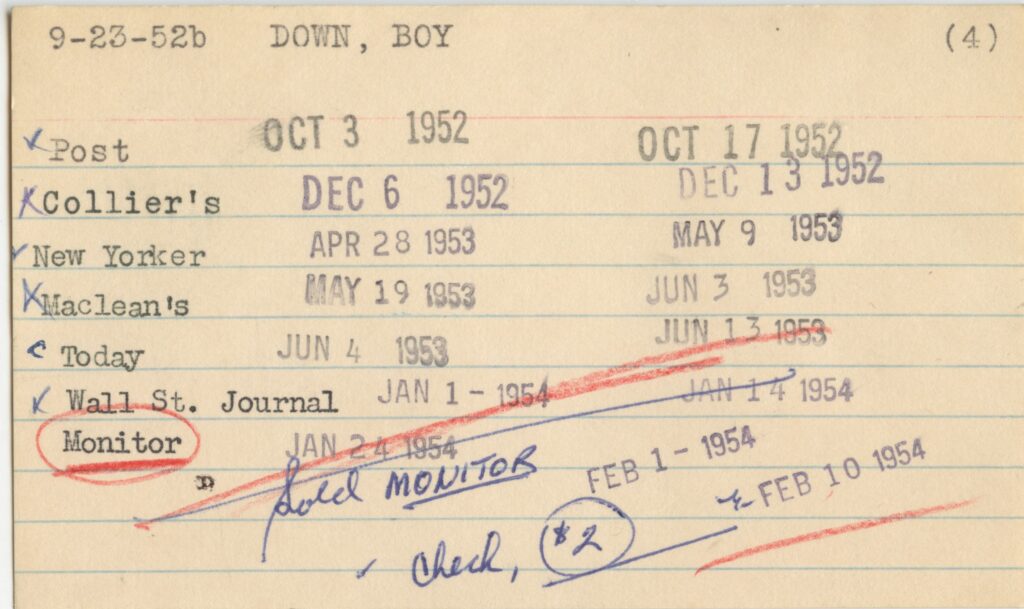 9-23-52b DOWN, BOY (4)
Post OCT 3 1952 OCT 17 1952
Collier's DEC 6 1952 DEC 13 1952
New Yorker APR 28 1953 MAY 9 1953
Maclean's MAY 19 1953 JUN 3 1953
Today JUN 4 1953 JUN 13 1953
Wall St. Journal JAN 1 - 1954 JAN 14 1954
Monitor JAN 24 1954 FEB 1 - 1954
Sold MONITOR FEB 10 1954
check, $2